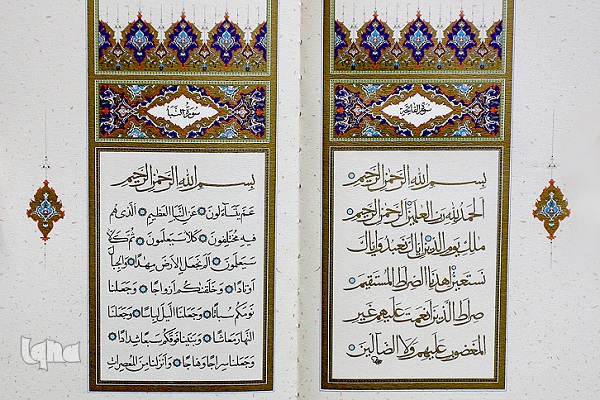 سورة الفاتحة
بسم الله الرحمن الرحيم
الحمد لله رب العلمين الرحمن الرحيم
ملك يوم الدين اياك نعبد واياك
نستعين اهدنا الصراط المستقيم
صراط الذين انعمت عليهم غير
المغضوب عليهم ولا الضالين
سورة النبأ
بسم الله الرحمن الرحيم
عم يتساءلون عن النبإ العظيم الذي هم
فيه مختلفون كلا سيعلمون ثم كلا
سيعلمون الم نجعل الارض مهدا والجبال
اوتادا وخلقنكم ازواجا وجعلنا
نومكم سباتا وجعلنا الليل لباسا وجعلنا
النهار معاشا وبنينا فوقكم سبعا شدادا
وجعلنا سراجا وهاجا وانزلنا من المعصرات
Iqna